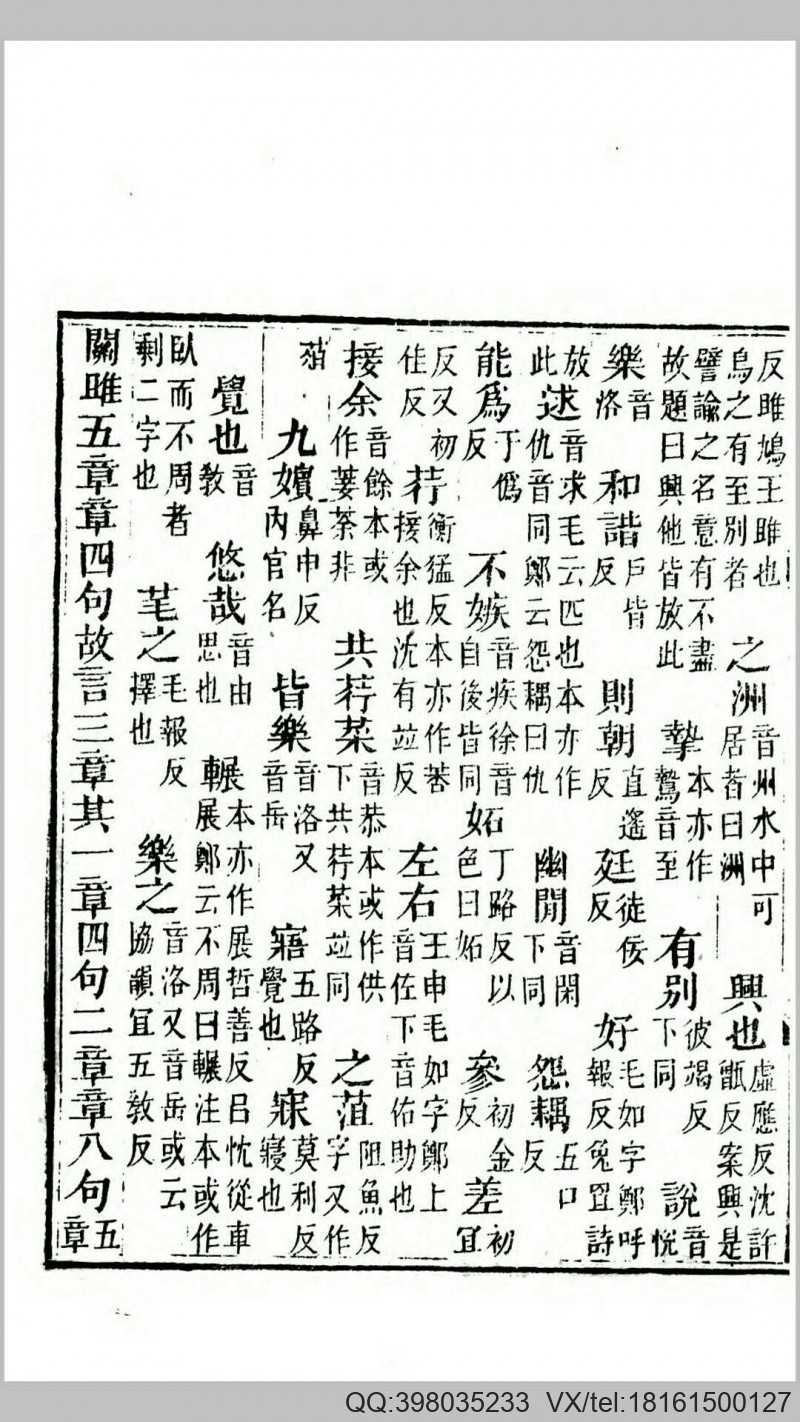 反雎鳩王雎也鳥之有至別者之洲音州水中可居者曰洲興也虛應反沈許甑反案興是
譬諭之名意有不盡故題曰興他皆放此摯本亦作鷙音至有別彼竭反下同說音悅
樂音洛和諧戶皆反則朝直遙反廷徒佞反好毛如字鄭呼報反兔罝詩
放此逑音求毛云匹也本亦作仇音同鄭云怨耦曰仇幽閒音閑下同怨耦五口反
能為于偽反不嫉音疾徐音自後皆同妬丁路反以色曰妬參初金反差初宜
反又初佳反荇衡猛反本亦作莕接余也沈有並反左右王申毛如字鄭上音佐下音佑助也
接余音餘本或作菨荼非共荇菜音恭本或作供下共荇菜並同之菹阻魚反字又作
葅九嬪鼻申反內官名皆樂音洛又音岳寤五路反覺也寐莫利反寢也
覺也音教悠哉音由思也輾本亦作展哲善反呂忱從車展鄭云不周曰輾注本或作
臥而不周者剩二字也芼之毛報反擇也樂之音洛又音岳或云協韻宜五教反
關雎五章章四句故言三章其一章四句二章章八句五章
QQ:398035233 VX/tel:18161500127